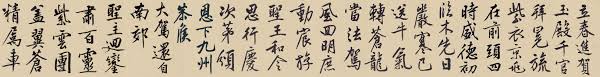 立春進賀
玉殿千官
拜冕旒
紫衣京兆
在前頭四
時盛德初
臨木先日
嚴寒已
送牛氣
轉蒼龍
當法駕
風回明庶
動宸斿
聖王和令
思行慶
次第頒
恩下九州
恭候
大駕還自
南郊
聖主迴鑾
肅百靈
紫雲團
蓋翼蒼
精屬車